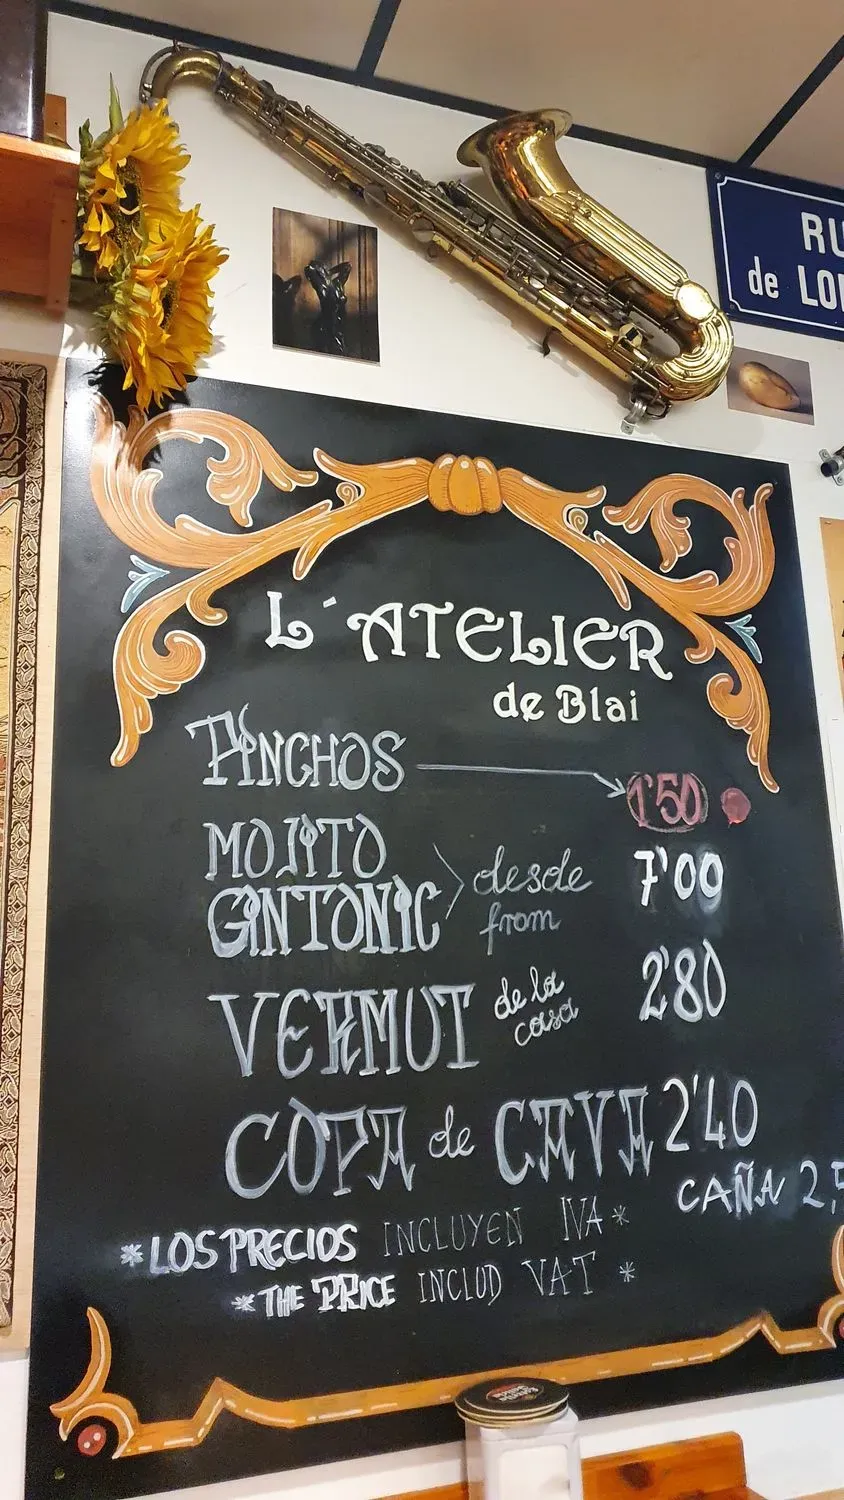 RU
de LO
L´ATELIER
de Blai
PINCHOS 1'50
MOJITO
GINTONIC desde 7'00
from
VERMUT de la casa 2'80
COPA de CAVA 2'40
CAÑA 2,5
*LOS PRECIOS INCLUYEN IVA*
*THE PRICE INCLUD VAT *